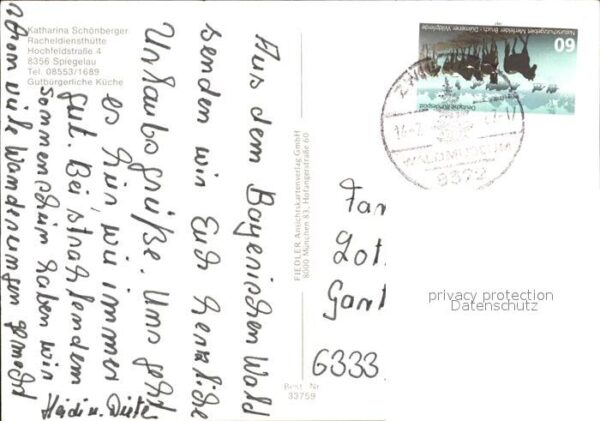 Katharina Schönberger
Racheldiensthütte
Hochfeldstraße 4
8356 Spiegelau
Tel. 08553/1689
Gutbürgerliche Küche
Aus dem Bayerischen Wald
senden wir Euch herzliche
Urlaubsgrüße. Uns geht
es hier wie immer
gut. Bei strahlendem
Sonnenschein haben wir
schon viele Wanderungen gemacht
Heidi u. Dieter
FIEDLER Ansichtskartenverlag GmbH
8000 München 83, Hofangerstraße 60
Best. Nr.
33759
60
Naturschutzgebiet Merfelder Bruch · Dülmener Wildpferde
Deutsche Bundespost
WALDMUSEUM
8372
Fam
Lot
Gart
6333
privacy protection
Datenschutz